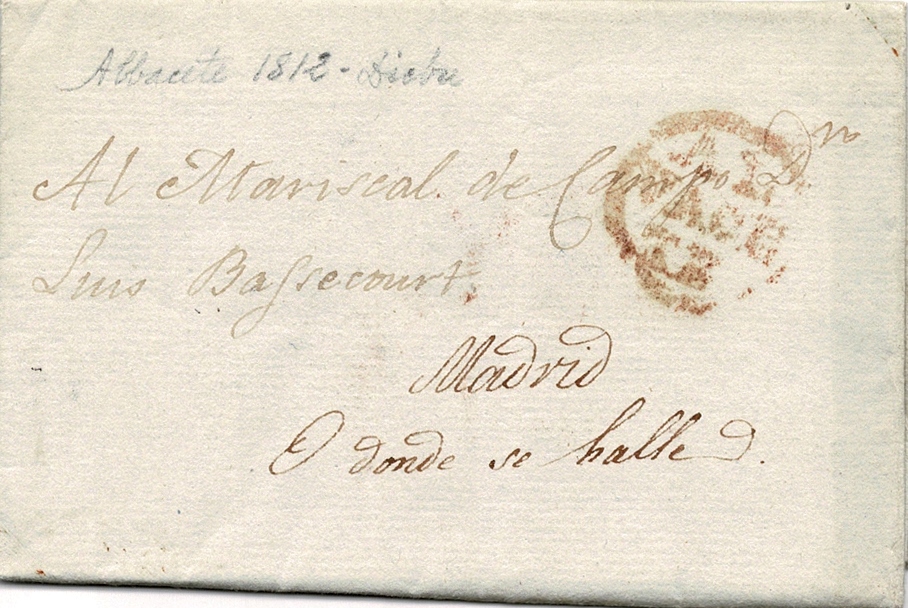 Albacete 1812 - Dicbre
Al Mariscal de Campo Dⁿ
Luis Bassecourt,
Madrid
O donde se halle
AL
BACE
TE